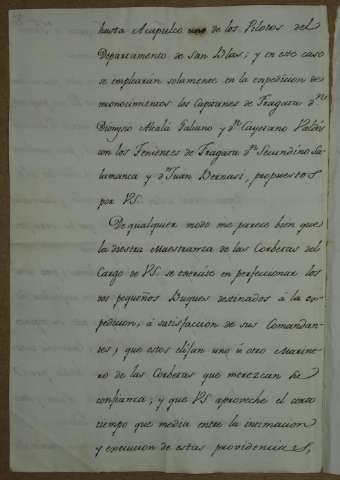 hasta Acapulco uno de los Pilotos del
Departamento de San Blas; y en este caso
se emplearán solamente en la expedicion de
reconocimentos los Capitanes de Fragata Dn.
Dionysio Alcalá Galiano y Dn. Cayetano Valdés
con los Tenientes de Fragata Dn. Secundino Sa-
lamanca y Dn. Juan Bernaci, propuestos
por VS.
De qualquier modo me parece bien que
la diestra Maestranza de las Corbetas del
Cargo de VS. se exercite en perfeccionar los
dos pequeños Buques destinados á la ex-
pedicion, á satisfaccion de sus Comandan-
tes; que estos elijan uno ú otro Marine-
ro de las Corbetas que merezcan su
confianza; y que VS. aproveche el corto
tiempo que media entre la
y execucion de estas providencias,